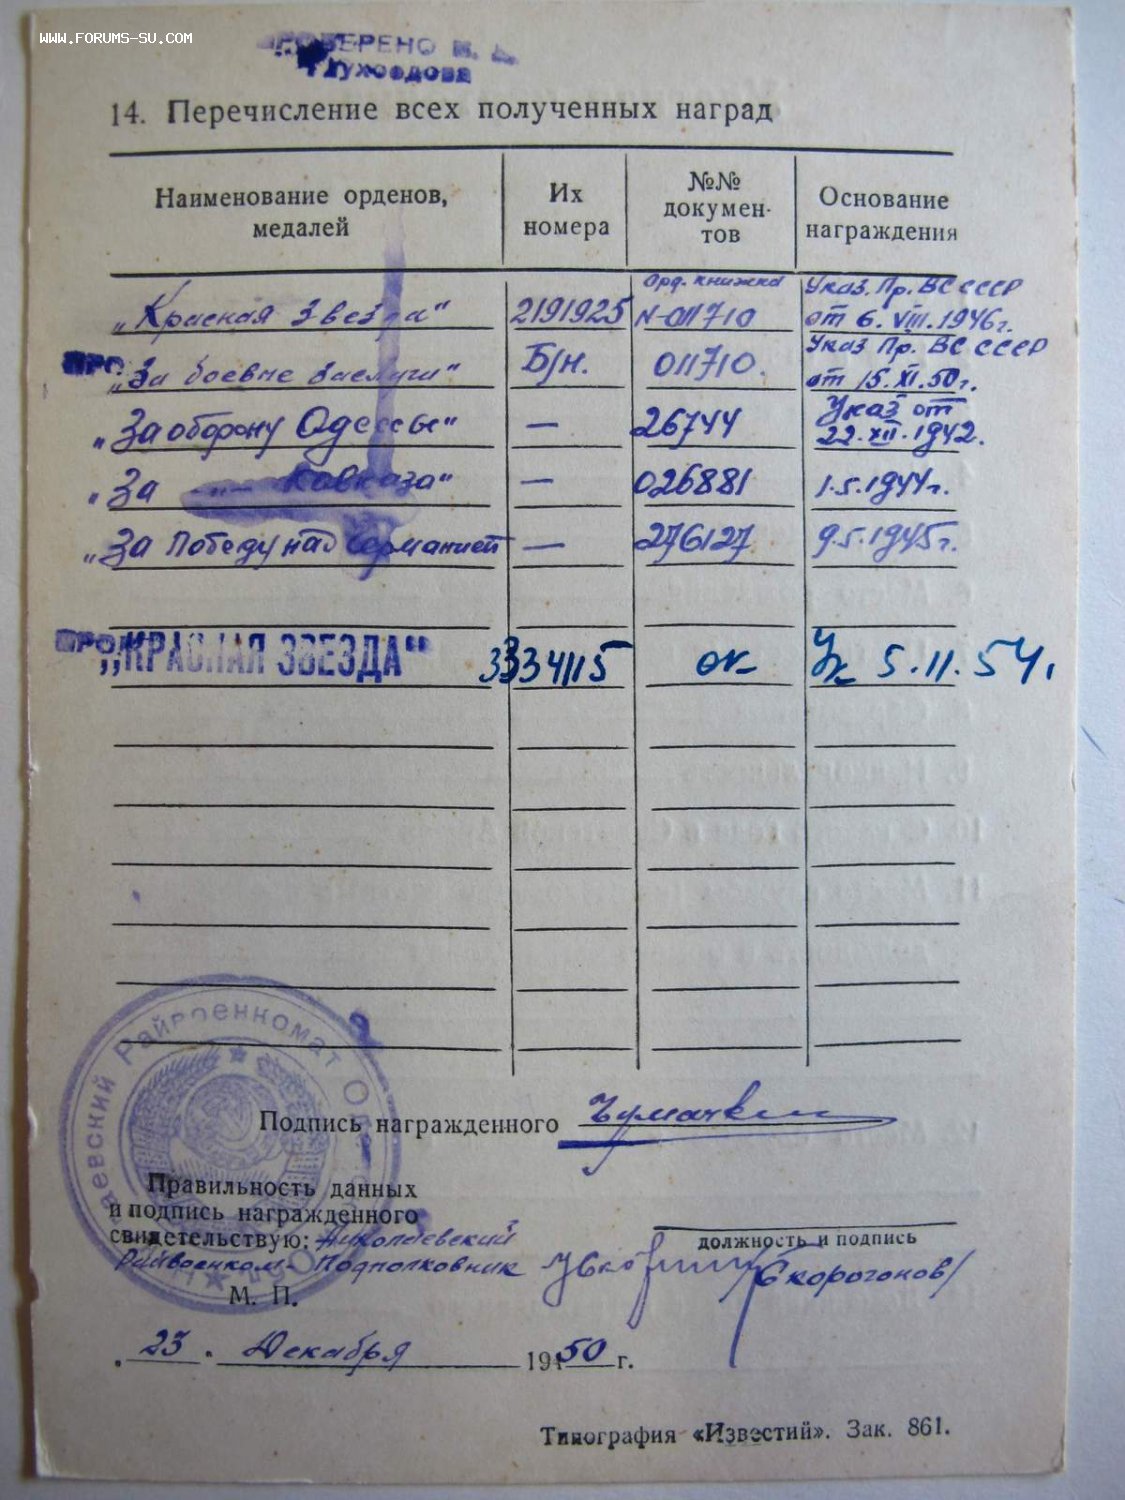 WWW.FORUMS-SU.COM
14. Перечисление всех полученных наград
Наименование орденов, медалей
Их номера
№№ докумен-тов
Основание награждения
„Красная Звезда“ 2191925 Орд. книжка N-011710 Указ. Пр. ВС СССР от 6. VIII. 1946г.
„За боевые заслуги“ Б/н. 011710. Указ Пр. ВС СССР от 15. XI. 50г.
„За оборону Одессы“ — 26744 Указ от 22. XII. 1942.
„За —„— Кавказа“ — 026881 1.5.1944г.
„За Победу над Германией — 276127 9.5.1945г.
„КРАСНАЯ ЗВЕЗДА“ 3334115 ок Ук 5.11.54г.
Райвоенкомат
Подпись награжденного
Правильность данных
и подпись награжденного
свидетельствую: Николаевский
Райвоенком - Подполковник
должность и подпись
/Скорогонов/
М. П.
23. Декабря 1950 г.
Типография «Известий». Зак. 861.